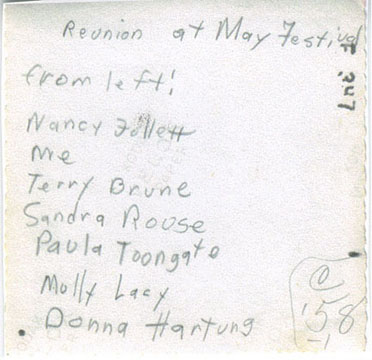 Reunion at May Festival
from left!
Nancy Follett
me
Terry Brune
Sandra Rouse
Paula Toongate
Molly Lacy
Donna Hartung
'58